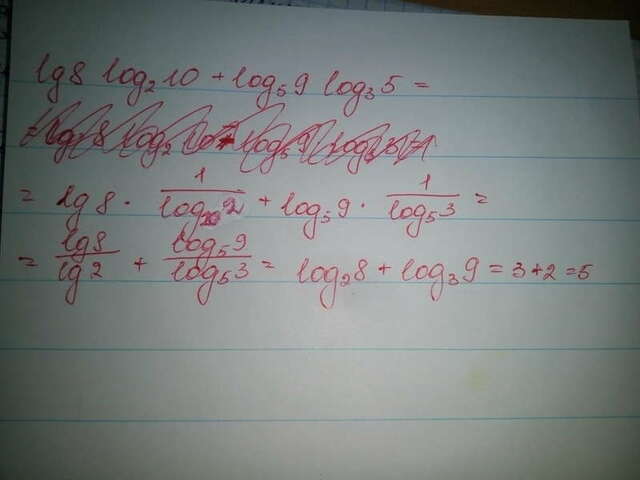 lg8 log₂10 + log₅9 log₃5 =
= lg8 · 1/log₁₀2 + log₅9 · 1/log₅3 =
= lg8/lg2 + log₅9/log₅3 = log₂8 + log₃9 = 3+2 = 5